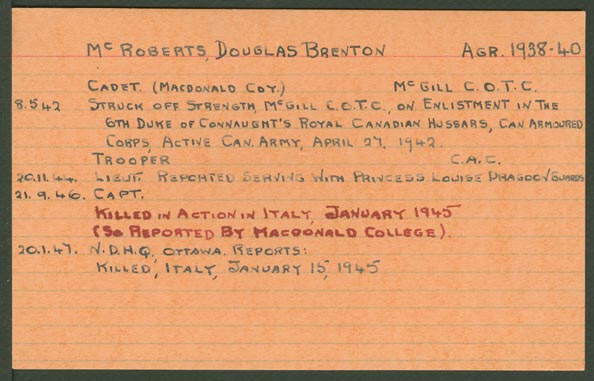 McRoberts, Douglas Brenton Agr. 1938-40
Cadet. (Macdonald Coy.) McGill C.O.T.C.
8.5.42 Struck off Strength, McGill C.O.T.C., on Enlistment in the
6th Duke of Connaught's Royal Canadian Hussars, Can Armoured
Corps, Active Can. Army, April 27, 1942.
Trooper C.A.C.
20.11.44. Lieut. Reported Serving With Princess Louise Dragoon Guards
21.9.46. Capt.
Killed in Action in Italy, January 1945
(So Reported By Macdonald College).
20.1.47. N.D.H.Q., Ottawa, Reports:
Killed, Italy, January 15, 1945